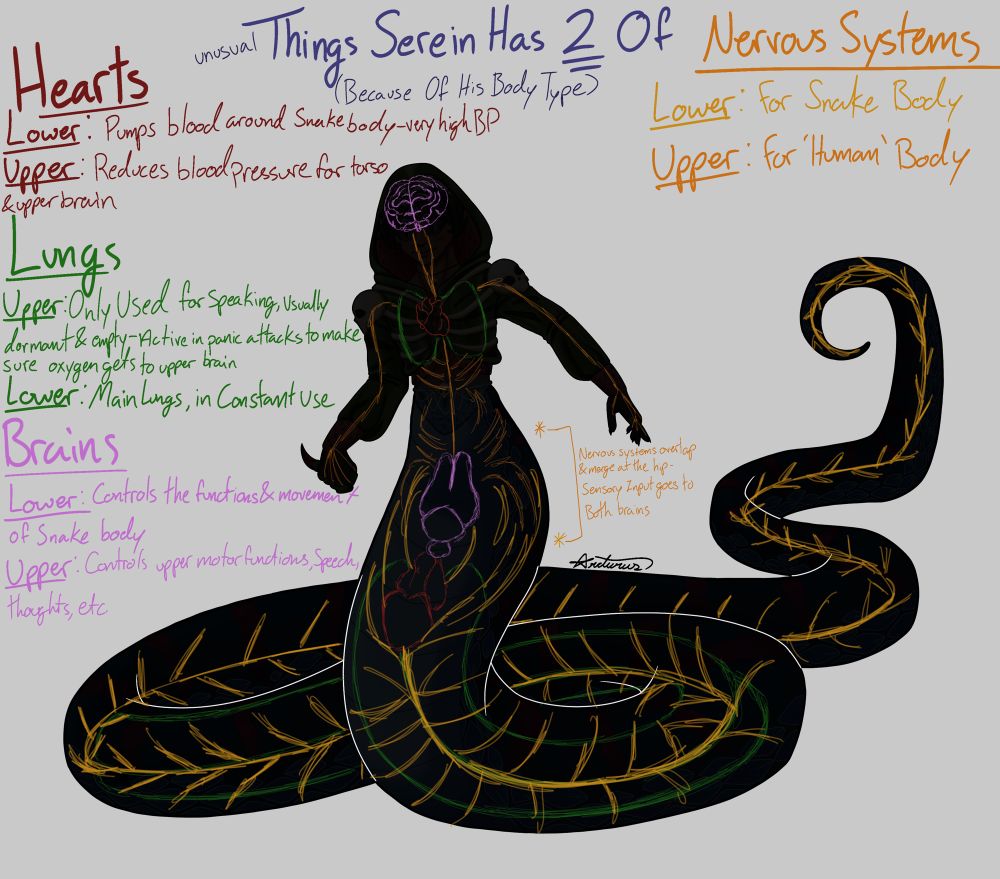 unusual Things Serein Has 2 Of
(Because Of His Body Type)
Hearts
Lower: Pumps blood around Snake body - very high BP
Upper: Reduces blood pressure for torso
& upper brain
Lungs
Upper: Only Used for Speaking, Usually
dormant & empty - Active in panic attacks to make
sure oxygen gets to upper brain
Lower: Main Lungs, in Constant Use
Brains
Lower: Controls the functions & movement
of Snake body
Upper: Controls upper motor functions, Speech,
thoughts, etc
Nervous Systems
Lower: For Snake Body
Upper: For 'Human' Body
Nervous systems overlap
& merge at the hip -
Sensory Input goes to
Both brains
Arcturus